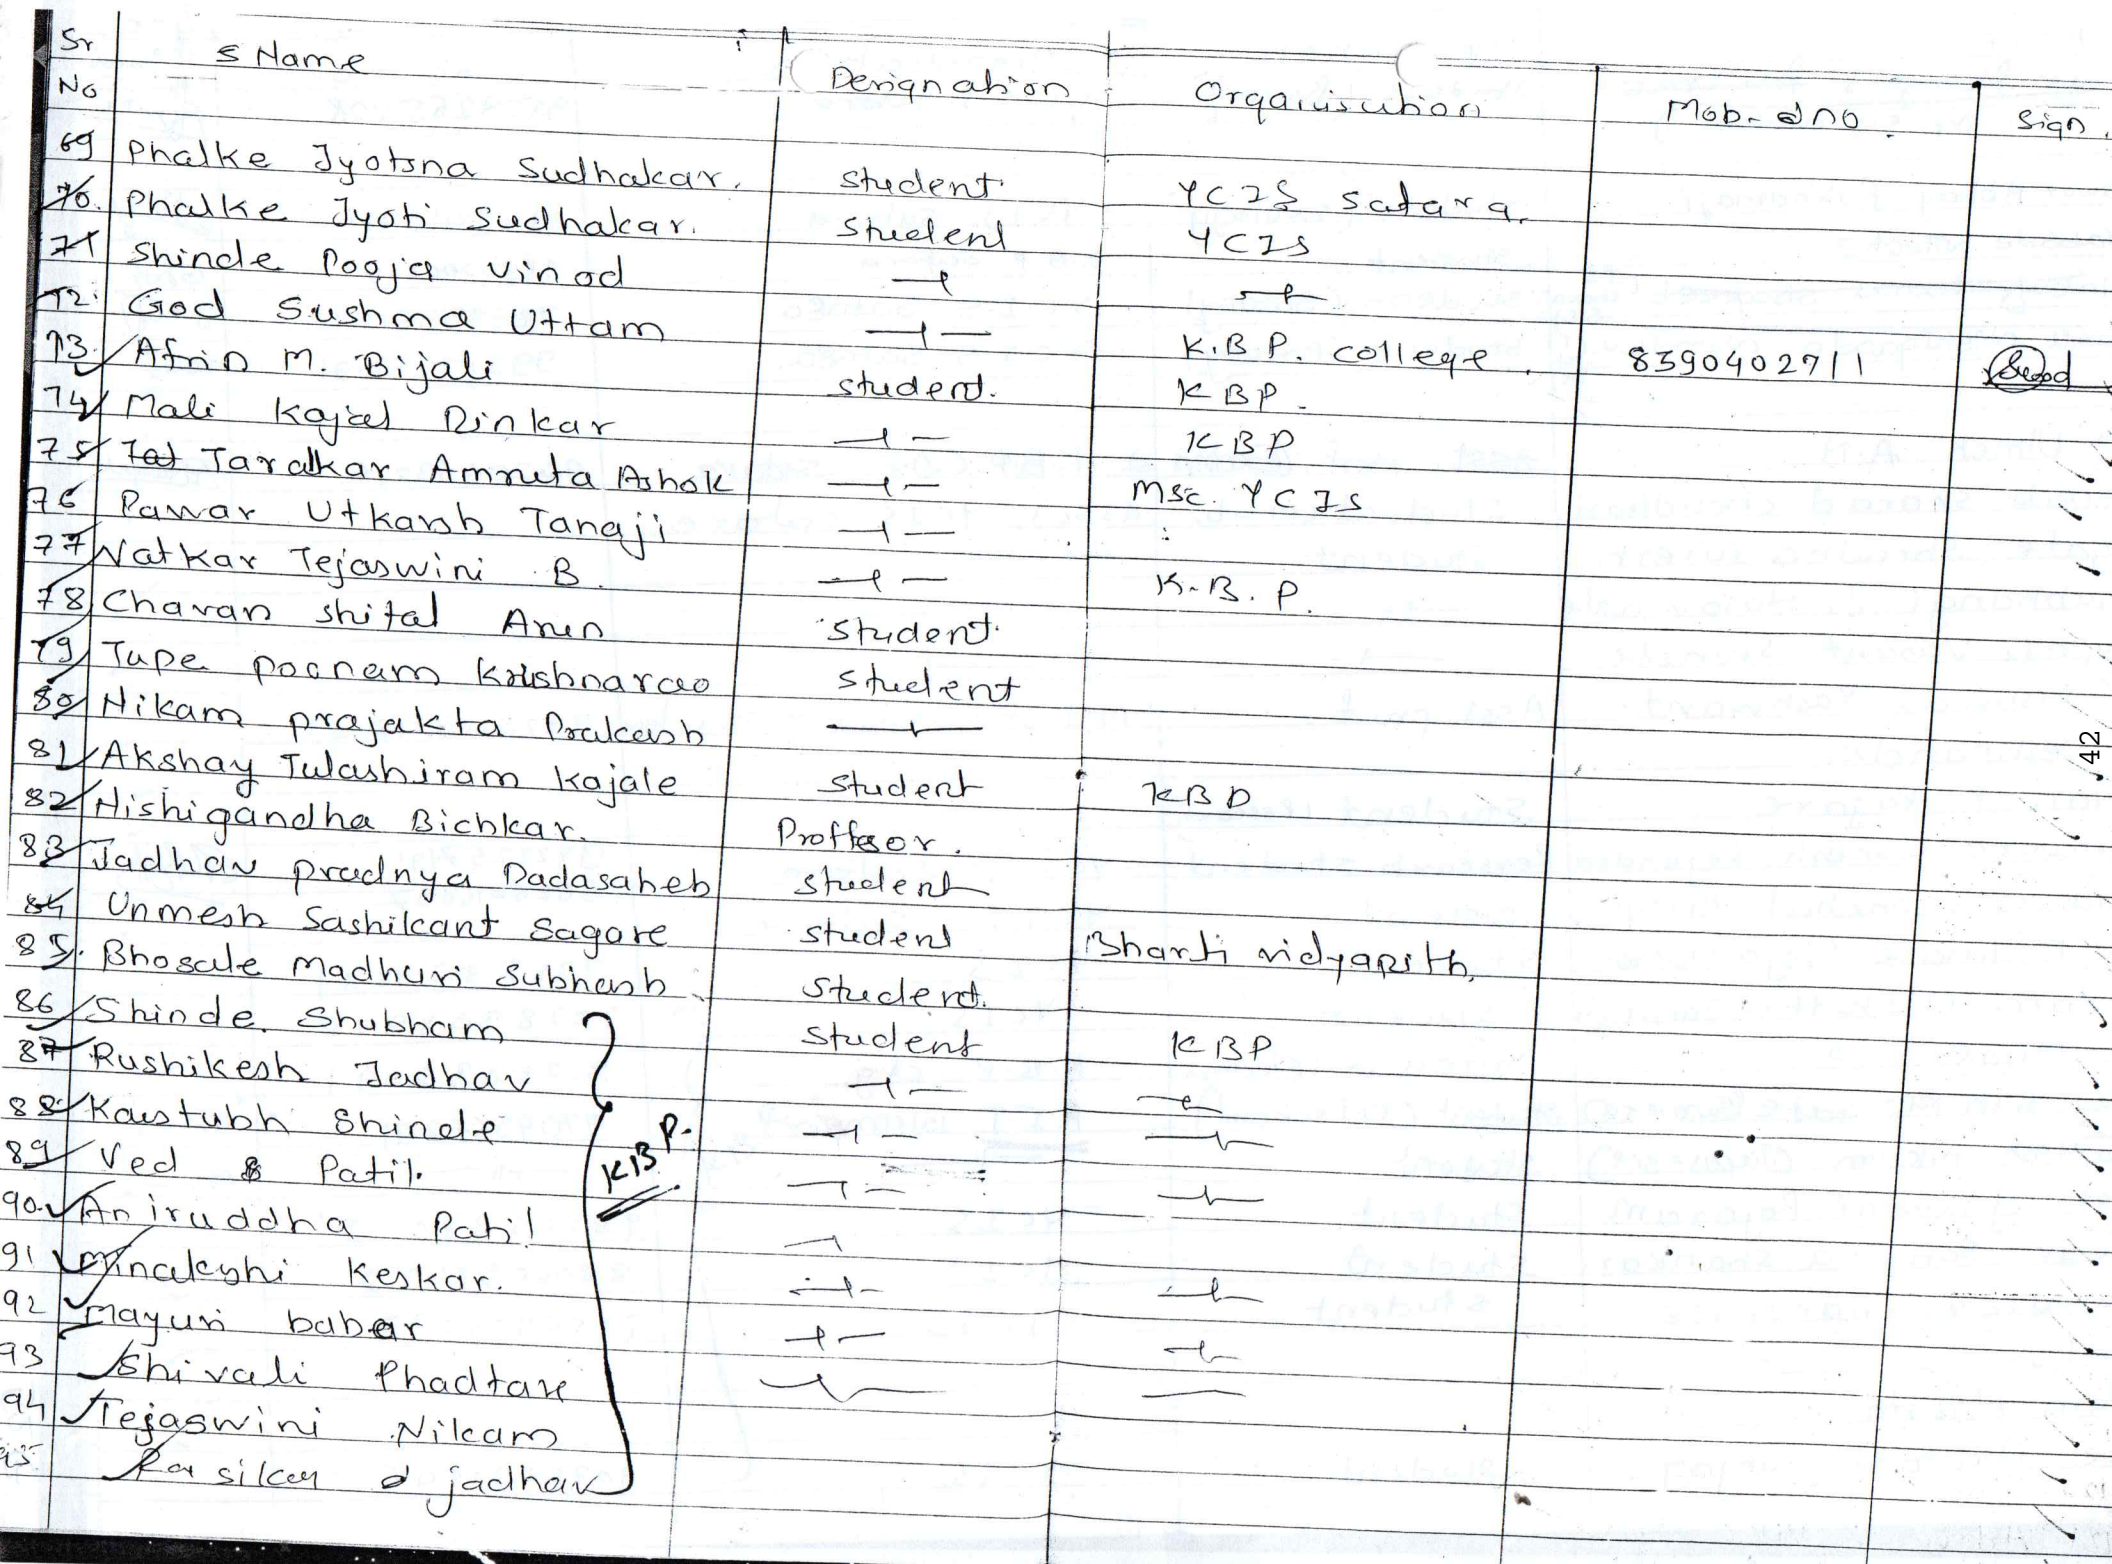 Sr No s Name Designation Organisution Mob. no. Sign.
69 Phalke Jyotsna Sudhakar. student. YCIS Satara.
70. Phalke Jyoti Sudhakar. Student YCIS
71 Shinde Pooja Vinod —〃— —〃—
72. God Sushma Uttam —〃— K.B.P. college. 8390402711
73. Afrin M. Bijali student. KBP.
74 Mali Kajal Dinkar —〃— KBP
75 Taralkar Amruta Ashok —〃— Msc. YCIS
76 Pawar Utkarsh Tanaji —〃—
77 Natkar Tejaswini B. —〃— K.B.P.
78 Chavan Shital Arun Student.
79 Tupe poonam Krishnarao student
80 Nikam prajakta Prakash —〃—
81 Akshay Tulashiram Kajale student KBP
82 Nishigandha Bichkar. Proffesor.
83 Jadhav pradnya Dadasaheb student
84 Unmesh Sashikant Sagare student Bharti vidyapith,
85. Bhosale Madhuri Subhash student.
86 Shinde. Shubham student KBP
87 Rushikesh Jadhav —〃— —〃—
88 Kaustubh Shinde —〃— —〃—
K.B.P.
89 Ved Patil. —〃— —〃—
90. Aniruddha Patil —〃—
91 Minakshi Keskar. —〃— —〃—
92 Mayuri babar —〃— —〃—
93 Shivali Phadtare —〃— —〃—
94 Tejaswini Nikam
95 Rasika jadhav
42